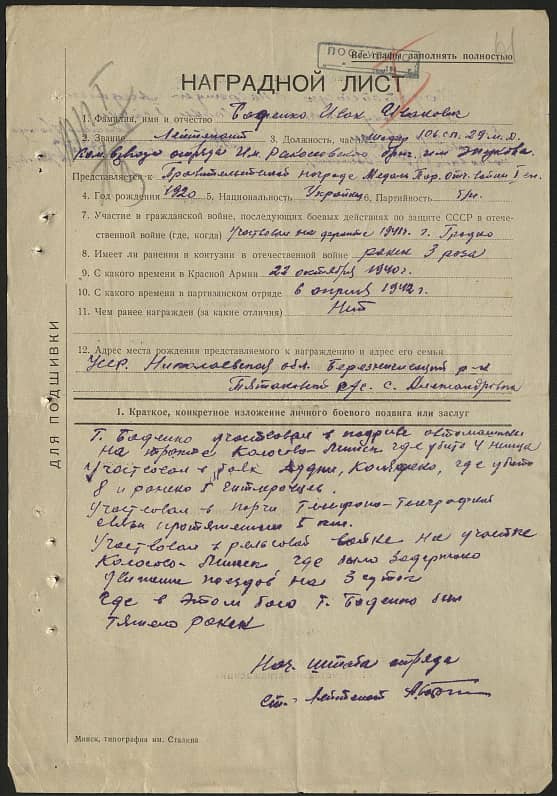 Все графы заполнять полностью
НАГРАДНОЙ ЛИСТ
1. Фамилия, имя и отчество Боденко Иван Иванович
2. Звание Лейтенант 3. Должность, часть 106 с.п. 29 м.д.
Ком. взвода отряда им. Рокосовского бриг. им. Жукова
Представляется к Правительственной награде Медаль Пар. Отч. войны I ст.
4. Год рождения 1920 5. Национальность Украинец 6. Партийность б/п
7. Участие в гражданской войне, последующих боевых действиях по защите СССР и отече-
ственной войне (где, когда) Участвовал на фронте 1941 г. г. Гродно
8. Имеет ли ранения и контузии в отечественной войне ранен 3 раза
9. С какого времени в Красной Армии 22 октября 1940 г.
10. С какого времени в партизанском отряде в апреле 1942 г.
11. Чем ранее награжден (за какие отличия) Нет
12. Адрес места рождения представляемого к награждению и адрес его семьи
УССР. Николаевская обл. р-н
с/с. с. Александровка
I. Краткое, конкретное изложение личного боевого подвига или заслуг
Т. Боденко участвовал в подрыве автомашины
на тракте Колосово-Минск где убито 4 немца
Участвовал в боях где убито
8 и ранено 5 гитлеровцев.
Участвовал в порчи Телефоно-телеграфной
связи протяжением 5 км.
Участвовал в рельсовой войне на участке
Колосово-Минск, где было задержано
движение поездов на 3 суток
где в этом бою Т. Боденко был
тяжело ранен
Нач. штаба отряда
Ст. Лейтенант
ДЛЯ ПОДШИВКИ
Минск, типография им. Сталина